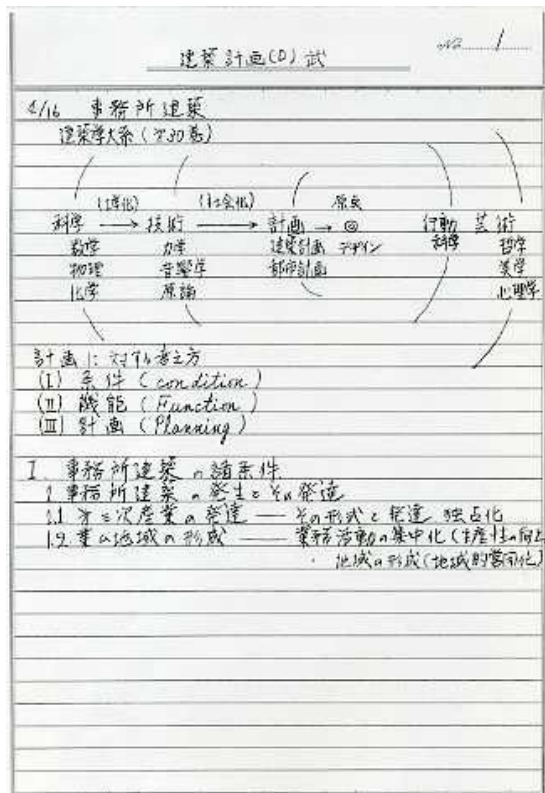 No. 1
建築計画(D) 武
4/16 事務所建築
建築学大系(第30巻)
(工学化) (社会化) 原点
科学 → 技術 → 計画 → ◎ 行動 芸術
数学 力学 建築計画 デザイン 科学 哲学
物理 音響学 都市計画 美学
化学 原論 心理学
計画に対する考え方
(I) 条件 (condition)
(II) 機能 (Function)
(III) 計画 (Planning)
I. 事務所建築の諸条件
1. 事務所建築の発生とその発達
1.1 第三次産業の発達 — その形式と発達 独占化
1.2. 業の地域の形成 — 業務活動の集中化(生産性の向上
・地域の形成(地域的